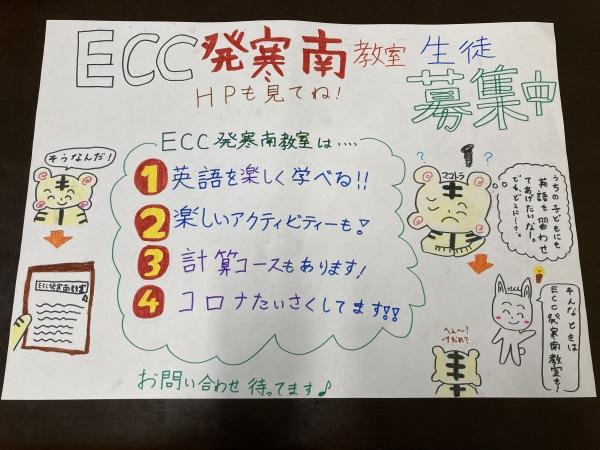 ECC発寒南教室 生徒
募集中
HPも見てね!
ECC発寒南教室は....
1 英語を楽しく学べる!!
2 楽しいアクティビティーも!
3 計算コースもあります!
4 コロナたいさくしてます!!
お問い合わせ待ってます♪
そうなんだ!
ECC発寒南教室
ママトラ
? ?
うちの子どもにも
英語を習わせ
てあげたいなー。
でも、どこに…?。
そんなときは
ECC発寒南教室も!
へぇ〜!